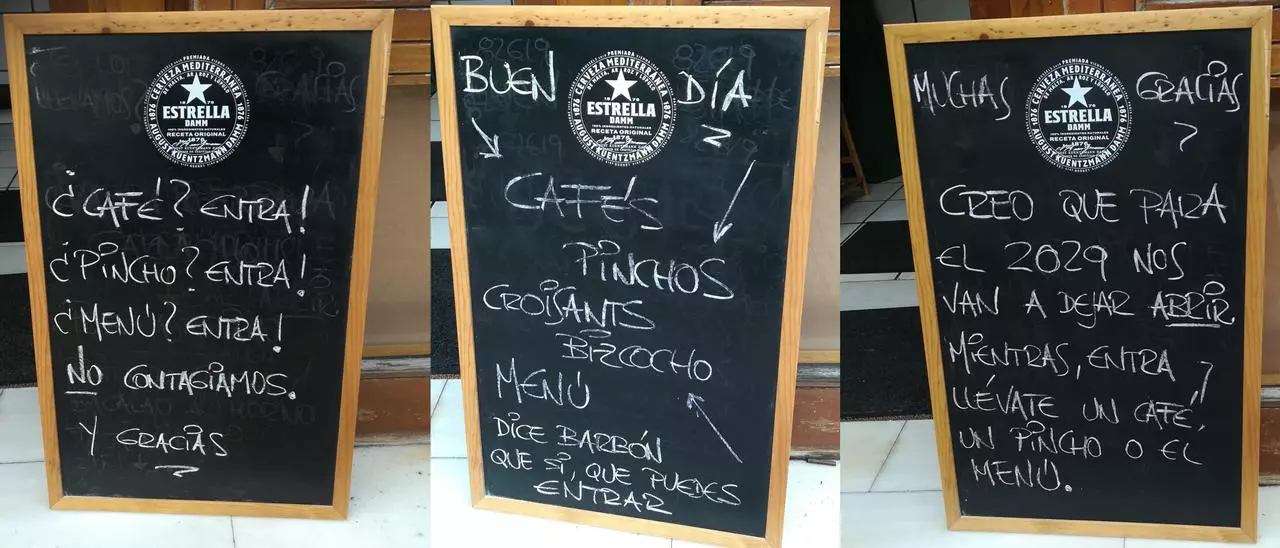 CERVEZA MEDITERRÁNEA
1876
ESTRELLA
DAMM
RECETA ORIGINAL
1876
AUGUST KUENTZMANN DAMM
¿CAFÉ? ENTRA!
¿PINCHO? ENTRA!
¿MENÚ? ENTRA!
NO CONTAGIAMOS.
Y GRACIAS
BUEN DÍA
PREMIADA
CERVEZA MEDITERRÁNEA
DE MALTA, ARROZ Y LÚPULO
1876
ESTRELLA
DAMM
100% INGREDIENTES NATURALES
RECETA ORIGINAL
1876
AUGUST KUENTZMANN DAMM
CAFÉS
PINCHOS
CROISANTS
BIZCOCHO
MENÚ
DICE BARBÓN
QUE SÍ, QUE PUEDES
ENTRAR
MUCHAS GRACIAS
CERVEZA MEDITERRÁNEA
1876
ESTRELLA
DAMM
RECETA ORIGINAL
1876
AUGUST KUENTZMANN DAMM
CREO QUE PARA
EL 2029 NOS
VAN A DEJAR ABRIR.
MIENTRAS, ENTRA Y
LLÉVATE UN CAFÉ,
UN PINCHO O EL
MENÚ.